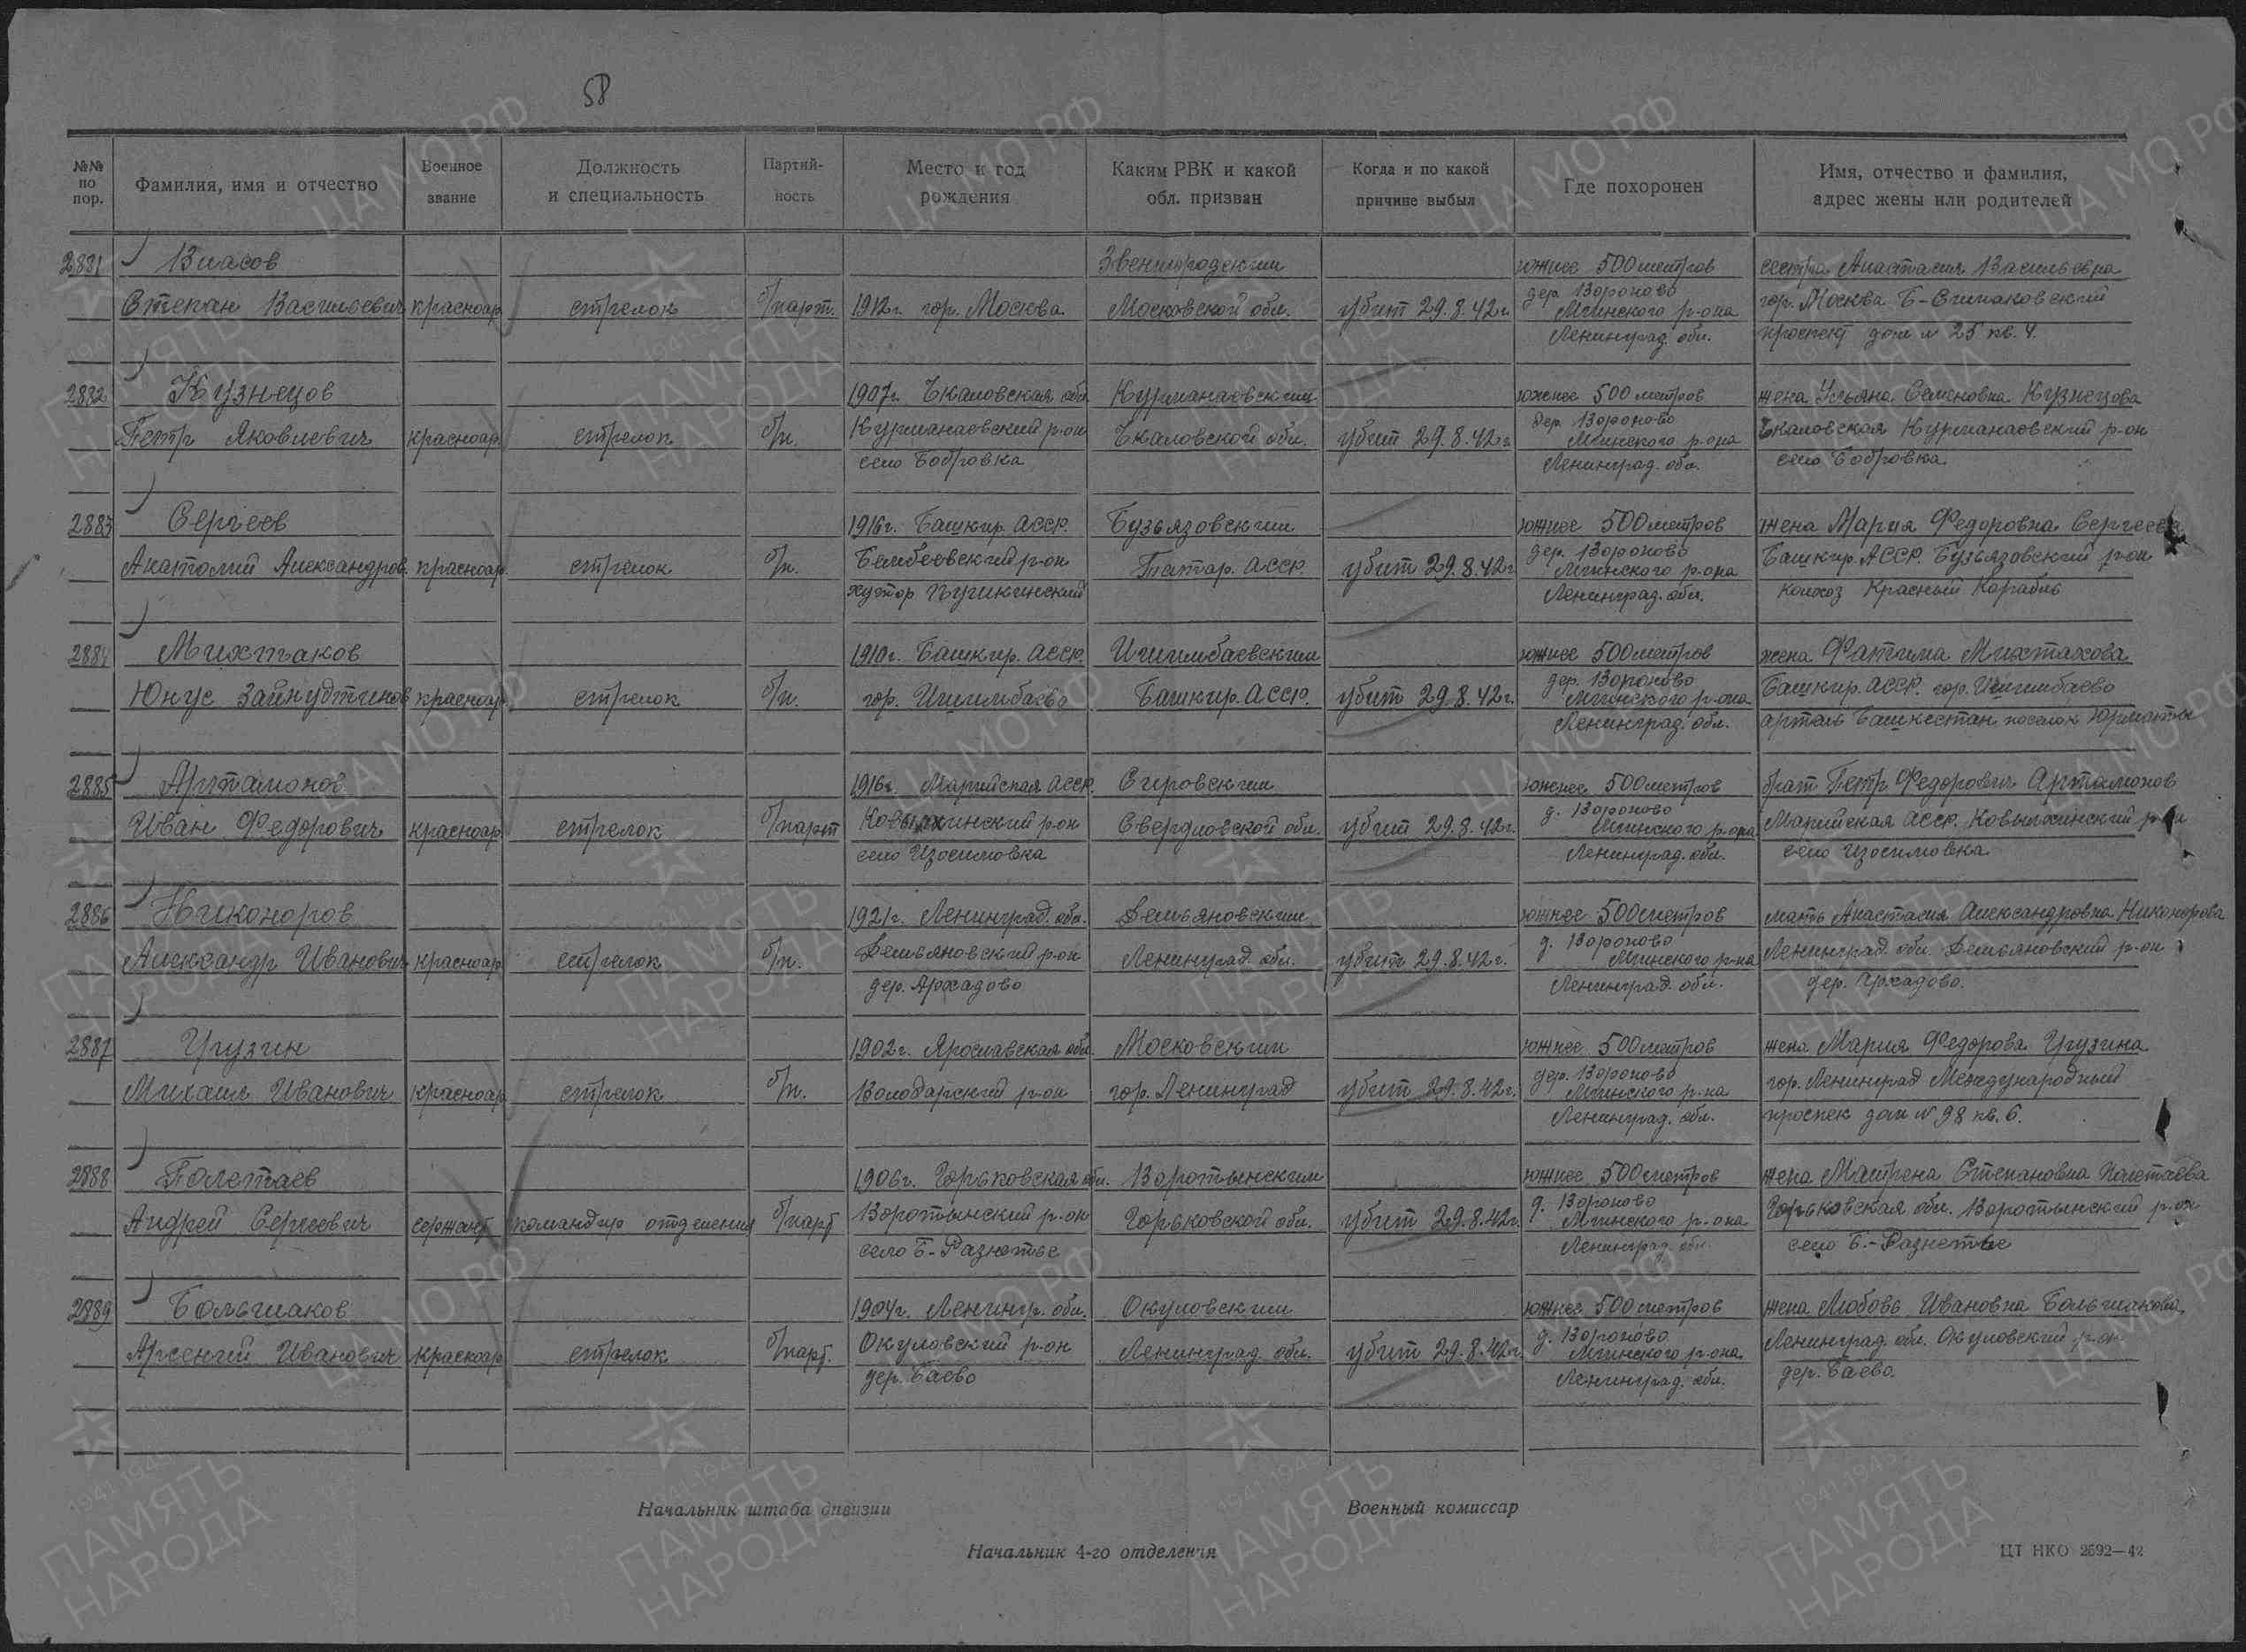 58
№№ по пор.
Фамилия, имя и отчество
Военное звание
Должность и специальность
Партий-ность
Место и год рождения
Каким РВК и какой обл. призван
Когда и по какой причине выбыл
Где похоронен
Имя, отчество и фамилия, адрес жены или родителей
2881 Власов Звенигородским южнее 500 метров сестра Анастасия Васильевна
Степан Васильевич красноар. стрелок б/парт. 1912г. гор. Москва Московской обл. убит 29.8.42г. дер. Вороново Мгинского р-она гор. Москва Б-Спинаковский
Ленинград. обл. проспект дом № 25 кв. 4.
2882 Кузнецов 1907г. Чкаловская обл. Курманаевским южнее 500 метров жена Ульяна Семеновна Кузнецова
Петр Яковлевич красноар. стрелок б/п. Курманаевский р-он Чкаловской обл. убит 29.8.42г. дер. Вороново Мгинского р-она Чкаловская Курманаевский р-он
село Бобровка Ленинград. обл. село Бобровка
2883 Сергеев 1916г. Башкир. АССР. Бузьязовским южнее 500 метров жена Мария Федоровна Сергеева
Анатолий Александров. красноар. стрелок б/п. Белебеевский р-он Татар. АССР. убит 29.8.42г. дер. Вороново Мгинского р-она Башкир. АССР. Бузьязовский р-он
хутор Пушкинский Ленинград. обл. колхоз Красный Корабль
2884 Михтаков 1910г. Башкир. АССР. Ишимбаевским южнее 500 метров жена Фатима Михтахова
Юнус Зайнудтинов красноар. стрелок б/п. гор. Ишимбаево Башкир. АССР. убит 29.8.42г. дер. Вороново Мгинского р-она Башкир. АССР. гор. Ишимбаево
Ленинград. обл. артель Башкестан поселок Юрматы
2885 Артамонов 1916г. Марийская АССР. Серовским южнее 500 метров брат Петр Федорович Артамонов
Иван Федорович красноар. стрелок б/парт Ковылкинский р-он Свердловской обл. убит 29.8.42г. д. Вороново Мгинского р-она Марийская АССР. Ковылкинский р-он
село Изосимовка Ленинград. обл. село Изосимовка
2886 Никоноров 1921г. Ленинград. обл. Демьяновским южнее 500 метров мать Анастасия Александровна Никонорова
Александр Иванович красноар. стрелок б/п. Демьяновский р-он Ленинград. обл. убит 29.8.42г. д. Вороново Мгинского р-на Ленинград. обл. Демьяновский р-он
дер. Архадово Ленинград. обл. дер. Архадово.
2887 Угузин 1902г. Ярославская обл. Московским южнее 500 метров жена Мария Федорова Угузина
Михаил Иванович красноар. стрелок б/п. Володарский р-он гор. Ленинград убит 29.8.42г. дер. Вороново Мгинского р-на гор. Ленинград Международный
Ленинград. обл. проспек дом № 98 кв. 6.
2888 Полетаев 1906г. Горьковская обл. Воротынским южнее 500 метров жена Матрена Степановна Полетаева
Андрей Сергеевич сержант командир отделения б/парт Воротынский р-он Горьковской обл. убит 29.8.42г. д. Вороново Мгинского р-она Горьковская обл. Воротынский р-он
село Б.-Разнетье Ленинград. обл. село Б.-Разнетье
2889 Большаков 1904г. Ленингр. обл. Окуловским южнее 500 метров жена Любовь Ивановна Большакова,
Арсений Иванович красноар. стрелок б/парт. Окуловский р-он Ленинград. обл. убит 29.8.42г. д. Вороново Мгинского р-она Ленинград. обл. Окуловский р-он
дер. Баево Ленинград. обл. дер. Баево.
Начальник штаба дивизии
Военный комиссар
Начальник 4-го отделения
ЦТ НКО 2692—42
ЦА МО РФ
1941 1945
ПАМЯТЬ НАРОДА